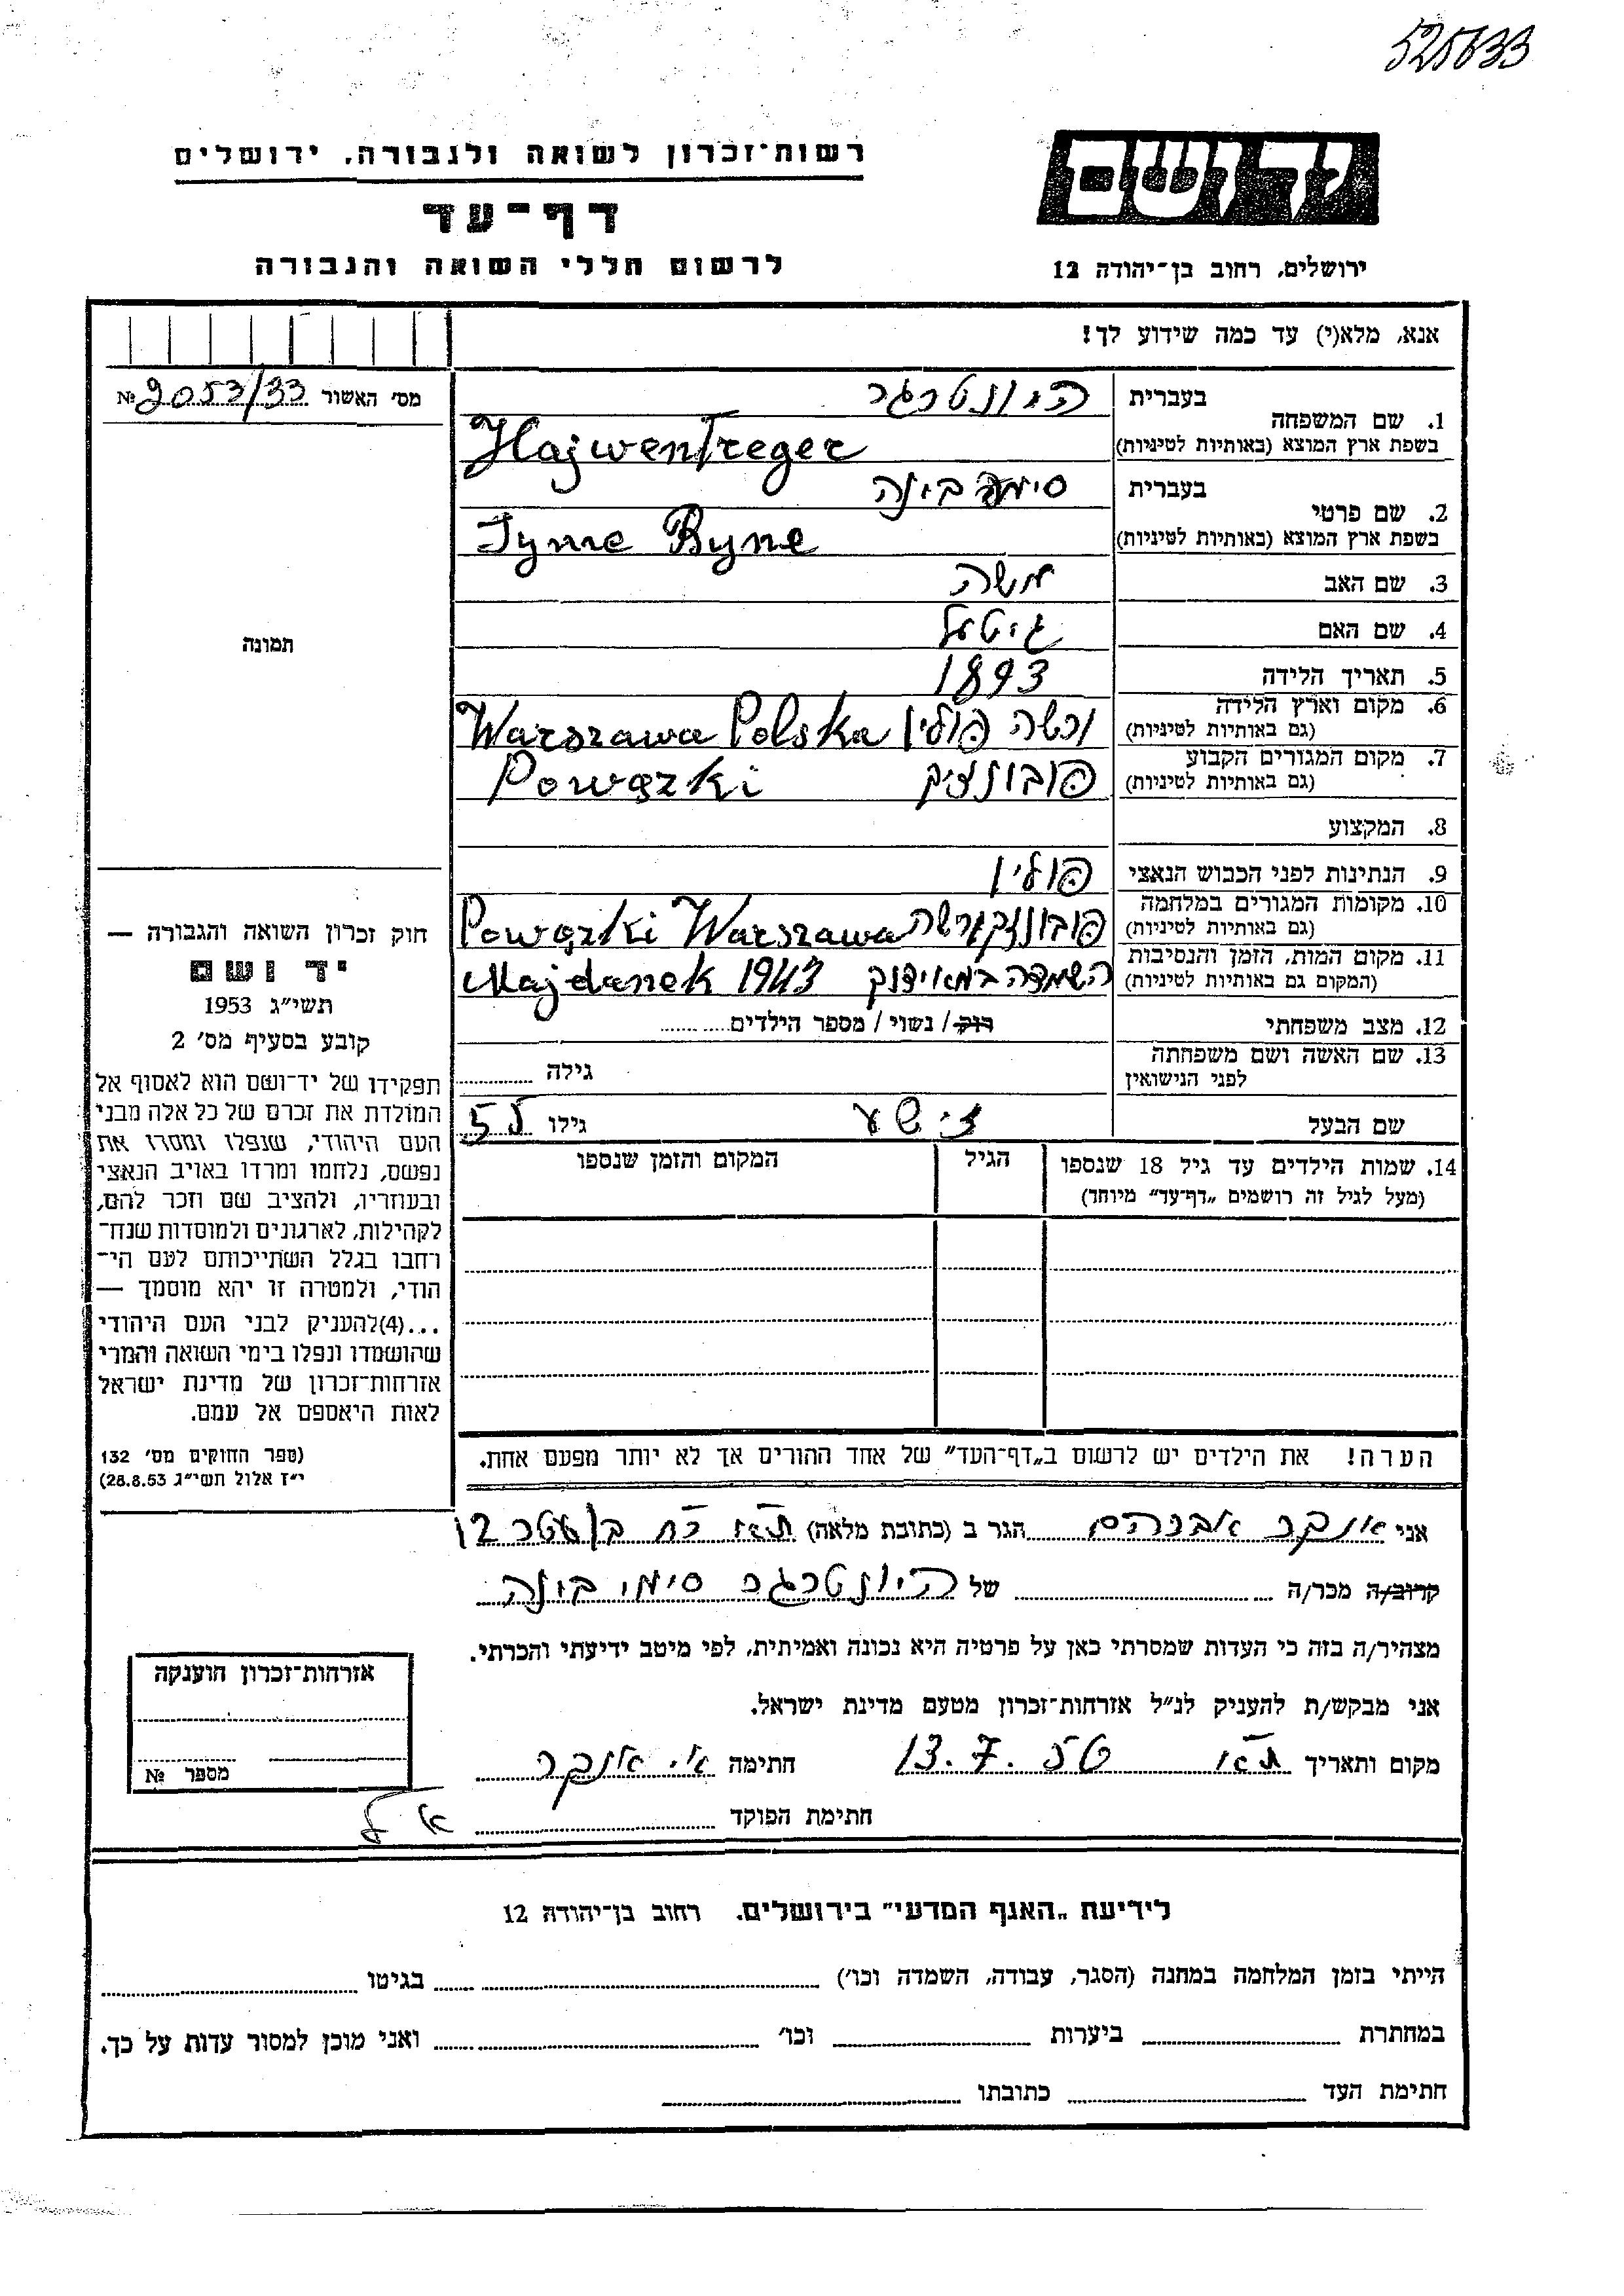 525633
רשות־זכרון לשואה ולגבורה, ירושלים
יד ושם
דף־עד
לרשום חללי השואה והגבורה
ירושלים, רחוב בן־יהודה 12
אנא, מלא(י) עד כמה שידוע לך!
מס׳ האשור № 2053/33
1. שם המשפחה בעברית היונטרגר
בשפת ארץ המוצא (באותיות לטיניות) Hajwentreger
2. שם פרטי בעברית סימה בינה
בשפת ארץ המוצא (באותיות לטיניות) Syme Byne
3. שם האב משה
4. שם האם גיטל
5. תאריך הלידה 1893
6. מקום וארץ הלידה (גם באותיות לטיניות) ורשה פולין Warszawa Polska
7. מקום המגורים הקבוע (גם באותיות לטיניות) Powązki
8. המקצוע
9. הנתינות לפני הכבוש הנאצי פולין
10. מקומות המגורים במלחמה (גם באותיות לטיניות) Powązki Warszawa
11. מקום המות, הזמן והנסיבות (המקום גם באותיות לטיניות) השמדה במאידנק Majdanek 1943
12. מצב משפחתי רוק / נשוי / מספר הילדים
13. שם האשה ושם משפחתה לפני הנישואין גילה
שם הבעל גילו
14. שמות הילדים עד גיל 18 שנספו הגיל המקום והזמן שנספו
(מעל לגיל זה רושמים „דף־עד” מיוחד)
תמונה
חוק זכרון השואה והגבורה —
יד ושם
תשי״ג 1953
קובע בסעיף מס׳ 2
תפקידו של יד־ושם הוא לאסוף אל
המולדת את זכרם של כל אלה מבני
העם היהודי, שנפלו ומסרו את
נפשם, נלחמו ומרדו באויב הנאצי
ובעוזריו, ולהציב שם וזכר להם,
לקהילות, לארגונים ולמוסדות שנח־
רחבו בגלל השתייכותם לעם הי־
הודי, ולמטרה זו יהא מוסמך —
...(4)להעניק לבני העם היהודי
שהושמדו ונפלו בימי השואה והמרי
אזרחות־זכרון של מדינת ישראל
לאות היאספם אל עמם.
(ספר החוקים מס׳ 132
י״ז אלול תשי״ג 28.8.53)
הערה! את הילדים יש לרשום ב„דף־העד” של אחד ההורים אך לא יותר מפעם אחת.
אני אנקר אברהם הגר ב (כתובת מלאה)
קרוב/ה מכר/ה של היונטרגר סימי בינה
מצהיר/ה בזה כי העדות שמסרתי כאן על פרטיה היא נכונה ואמיתית, לפי מיטב ידיעתי והכרתי.
אני מבקש/ת להעניק לנ״ל אזרחות־זכרון מטעם מדינת ישראל.
מקום ותאריך ת״א 13.7.56 חתימה אנקר
חתימת הפוקד
אזרחות־זכרון הוענקה
מספר №
לידיעת „האגף המדעי” בירושלים, רחוב בן־יהודה 12
הייתי בזמן המלחמה במחנה (הסגר, עבודה, השמדה וכו׳) בגיטו
במחתרת ביערות וכו׳ ואני מוכן למסור עדות על כך.
חתימת העד כתובתו